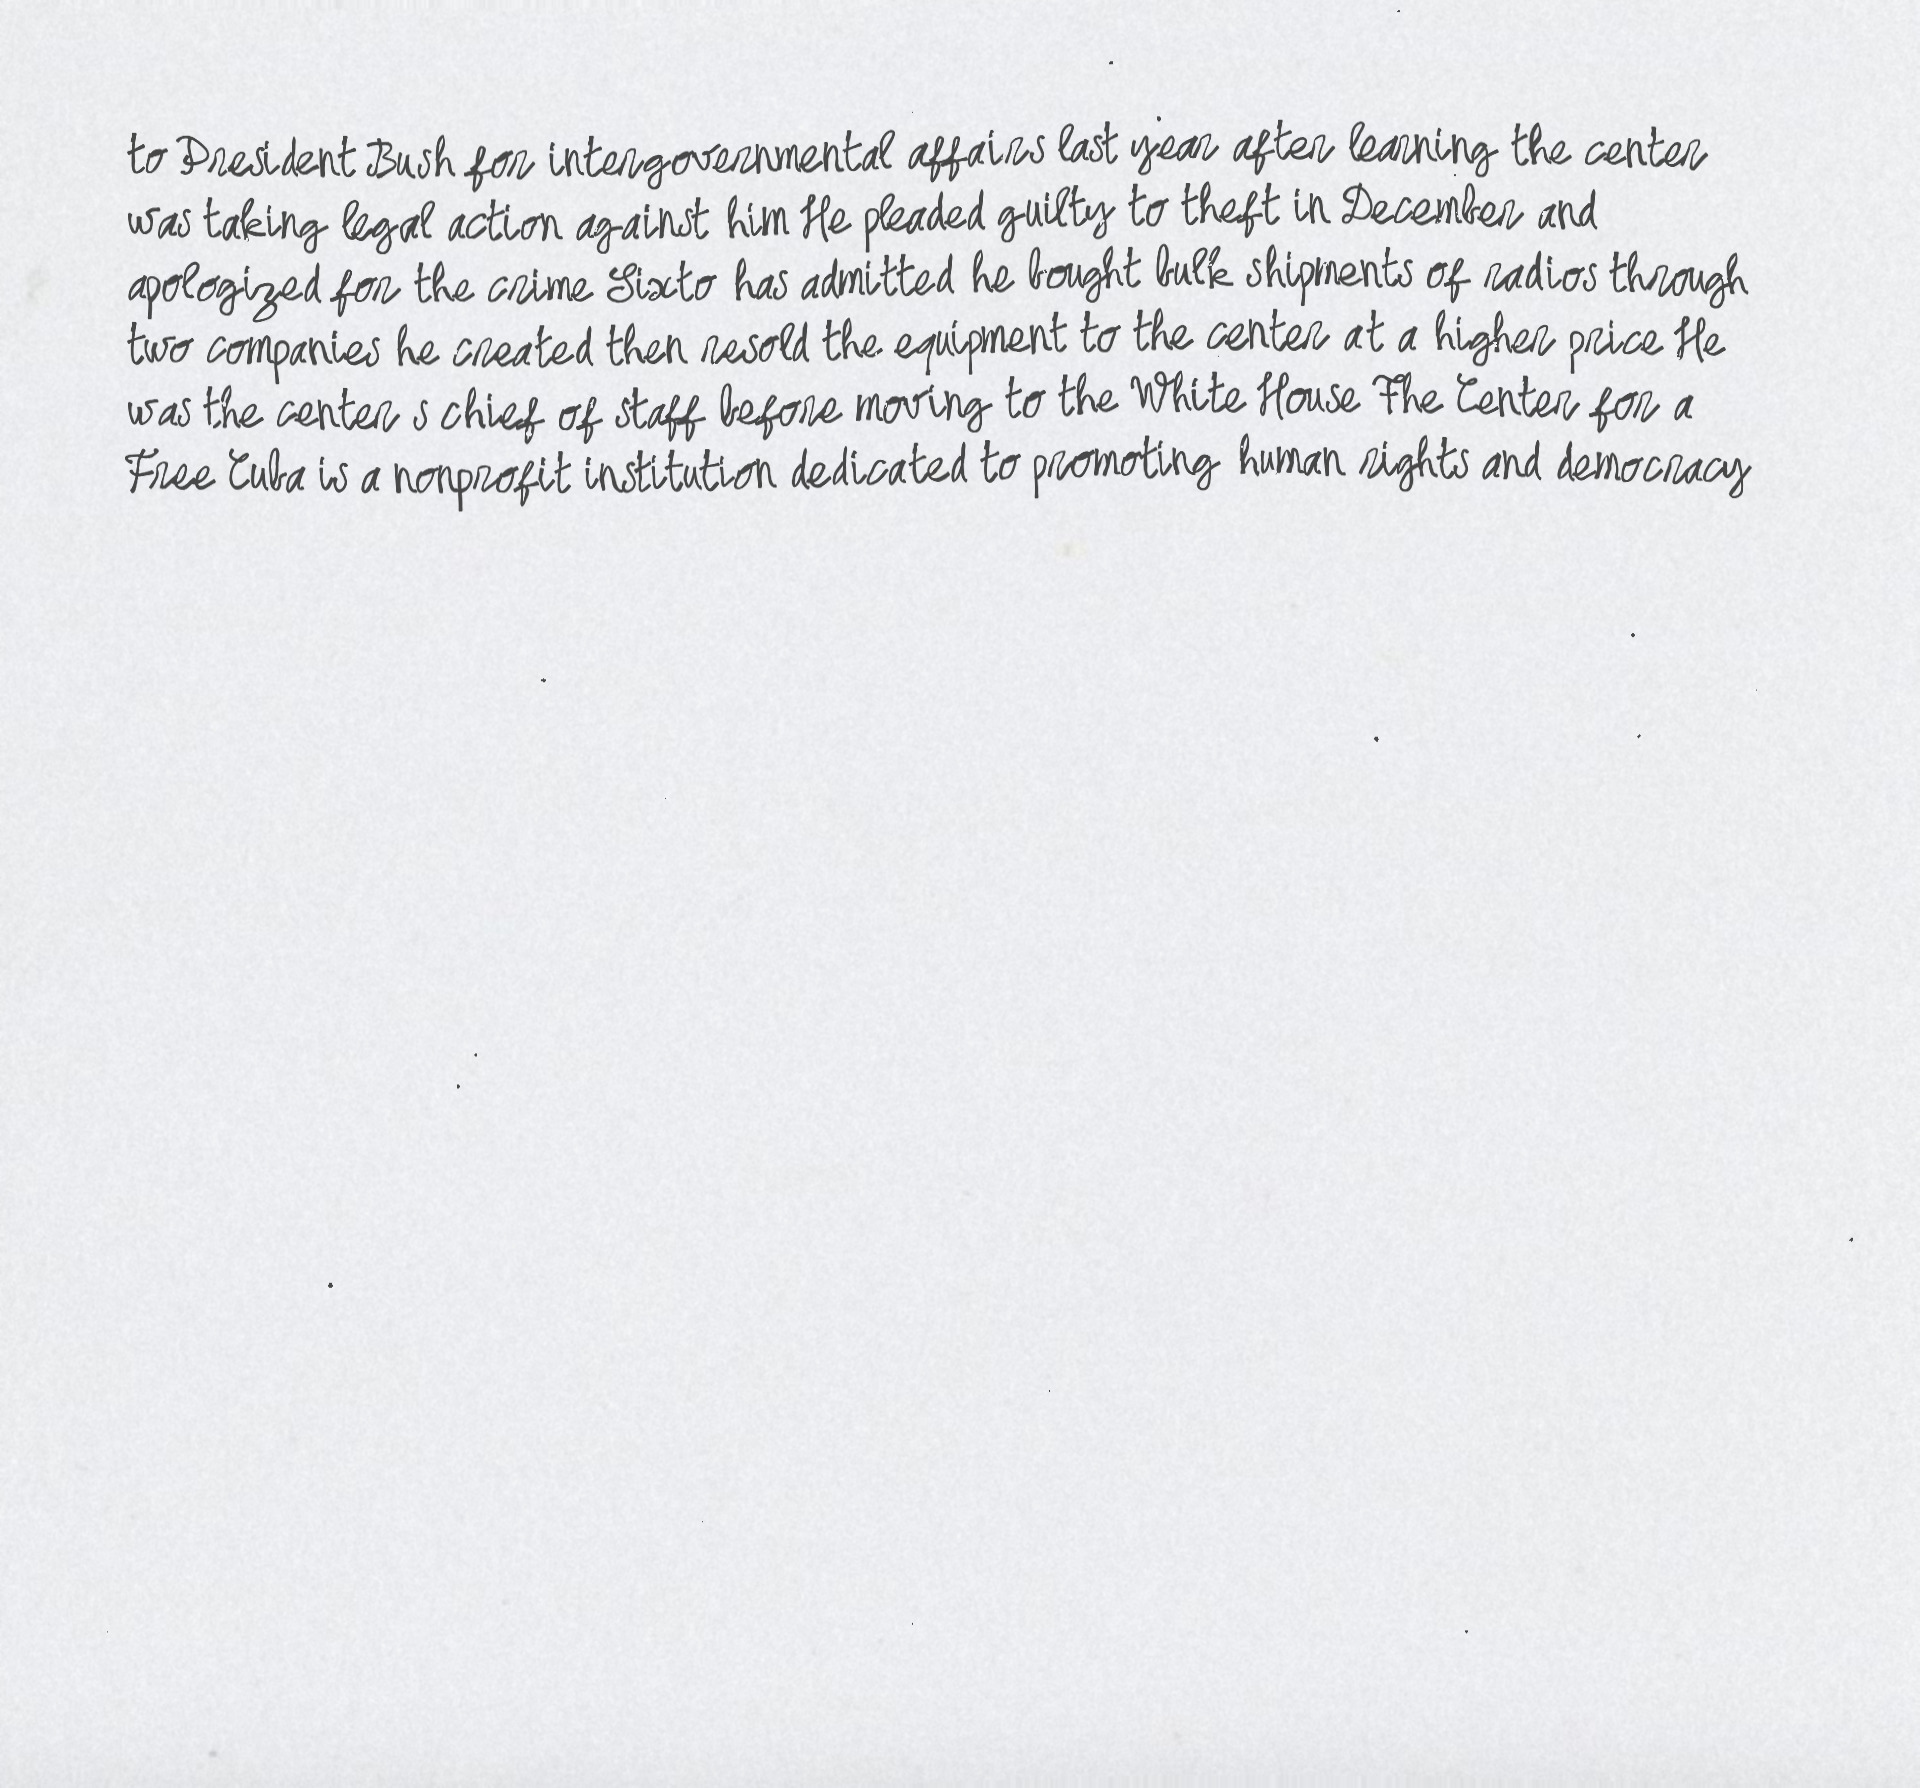 to President Bush for intergovernmental affairs last year after learning the center
was taking legal action against him He pleaded guilty to theft in December and
apologized for the crime Sixto has admitted he bought bulk shipments of radios through
two companies he created then resold the equipment to the center at a higher price He
was the center s chief of staff before moving to the White House The Center for a
Free Cuba is a nonprofit institution dedicated to promoting human rights and democracy